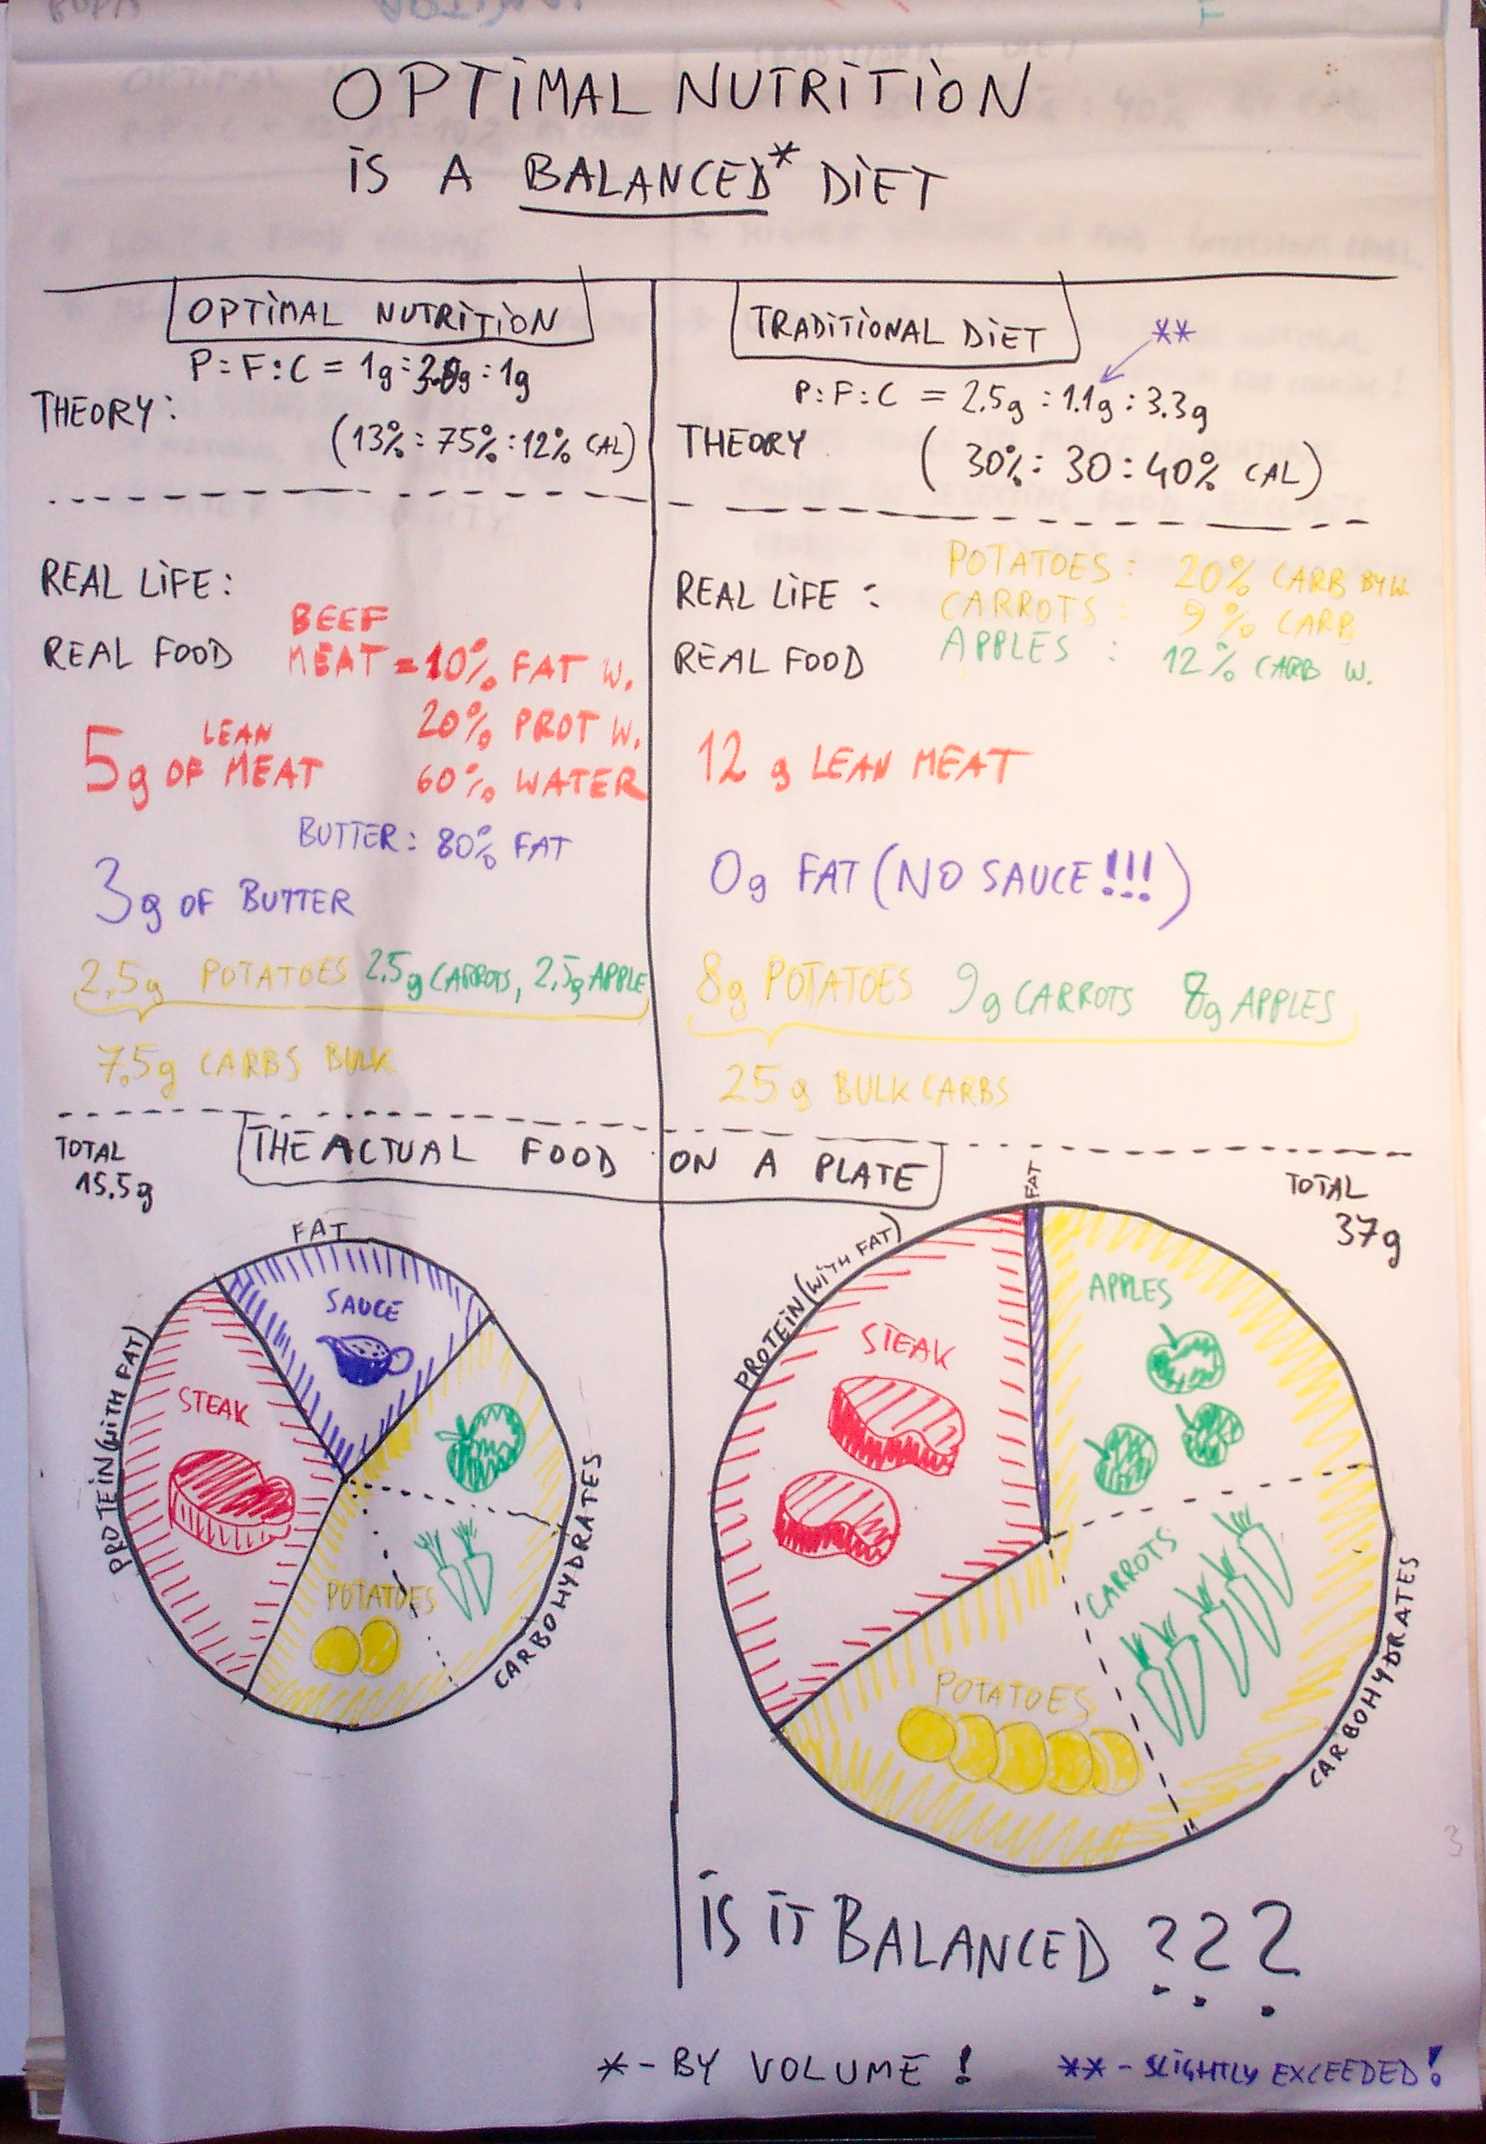 OPTIMAL NUTRITION
IS A BALANCED* DIET
OPTIMAL NUTRITION
P:F:C = 1g : : 1g
THEORY:
(13% : 75% : 12% CAL)
REAL LIFE:
REAL FOOD
BEEF
MEAT = 10% FAT W.
20% PROT W.
60% WATER
5g OF LEAN MEAT
BUTTER: 80% FAT
3g OF BUTTER
2,5g POTATOES 2,5g CARROTS, 2,5g APPLE
7,5g CARBS BULK
TRADITIONAL DIET
**
P:F:C = 2.5g : 1.1g : 3.3g
THEORY
(30% : 30 : 40% CAL)
REAL LIFE:
REAL FOOD
POTATOES: 20% CARB BY W.
CARROTS: 9% CARB
APPLES: 12% CARB W.
12 g LEAN MEAT
0g FAT (NO SAUCE!!!)
8g POTATOES 9g CARROTS 8g APPLES
25 g BULK CARBS
THE ACTUAL FOOD ON A PLATE
TOTAL
15.5g
FAT
SAUCE
PROTEIN (WITH FAT)
STEAK
POTATOES
CARBOHYDRATES
TOTAL
37g
FAT
PROTEIN (WITH FAT)
STEAK
APPLES
CARROTS
POTATOES
CARBOHYDRATES
IS IT BALANCED ???
* - BY VOLUME!
** - SLIGHTLY EXCEEDED!
3